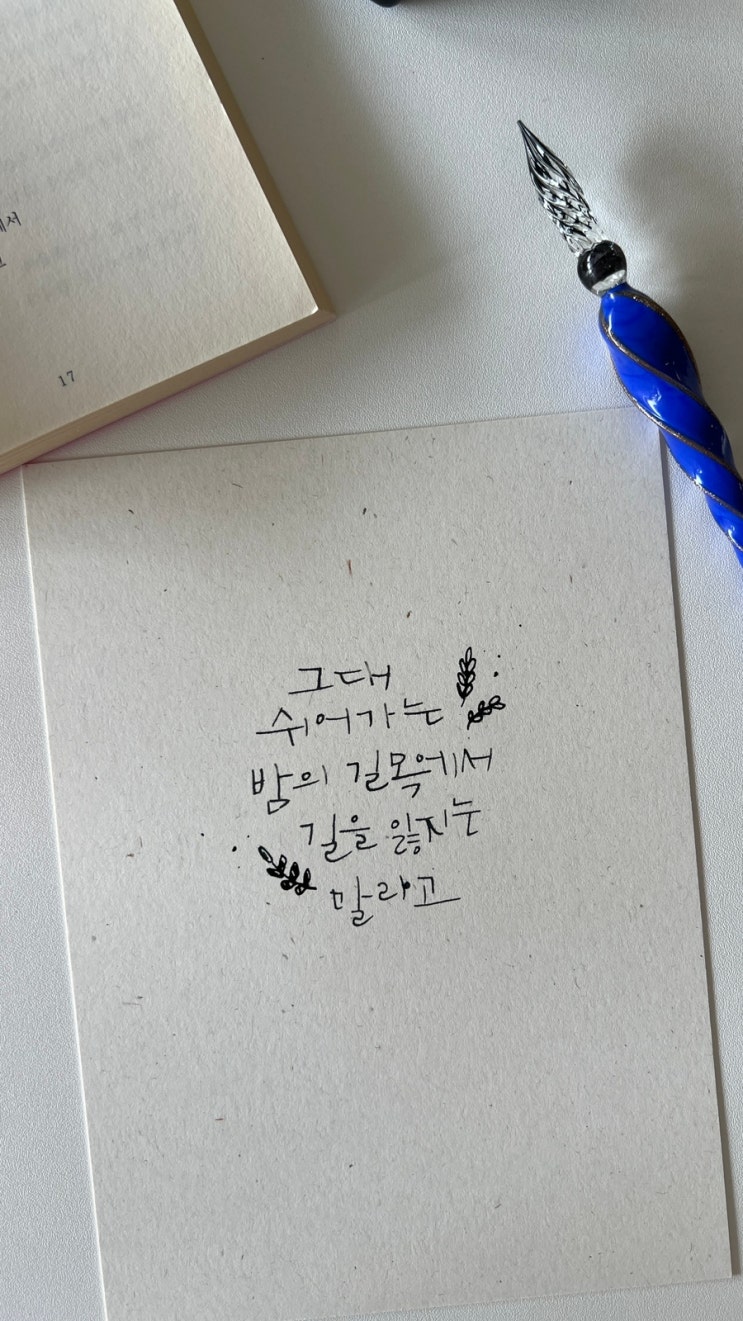 에서
고
17
그대
쉬어가는
밤의 길목에서
길을 잃지는
말라고